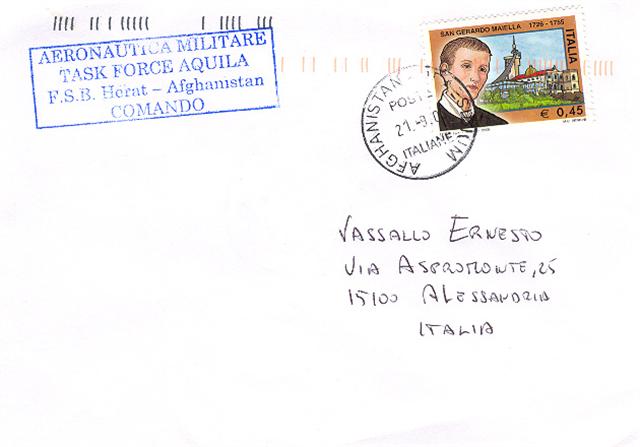 AERONAUTICA MILITARE
TASK FORCE AQUILA
F.S.B. Herat – Afghanistan
COMANDO
SAN GERARDO MAIELLA 1726 - 1755
ITALIA
€ 0,45
AFGHANISTAN
POSTE
21.-9.0
ITALIANE
VASSALLO ERNESTO
VIA ASPROMONTE, 25
15100 ALESSANDRIA
ITALIA